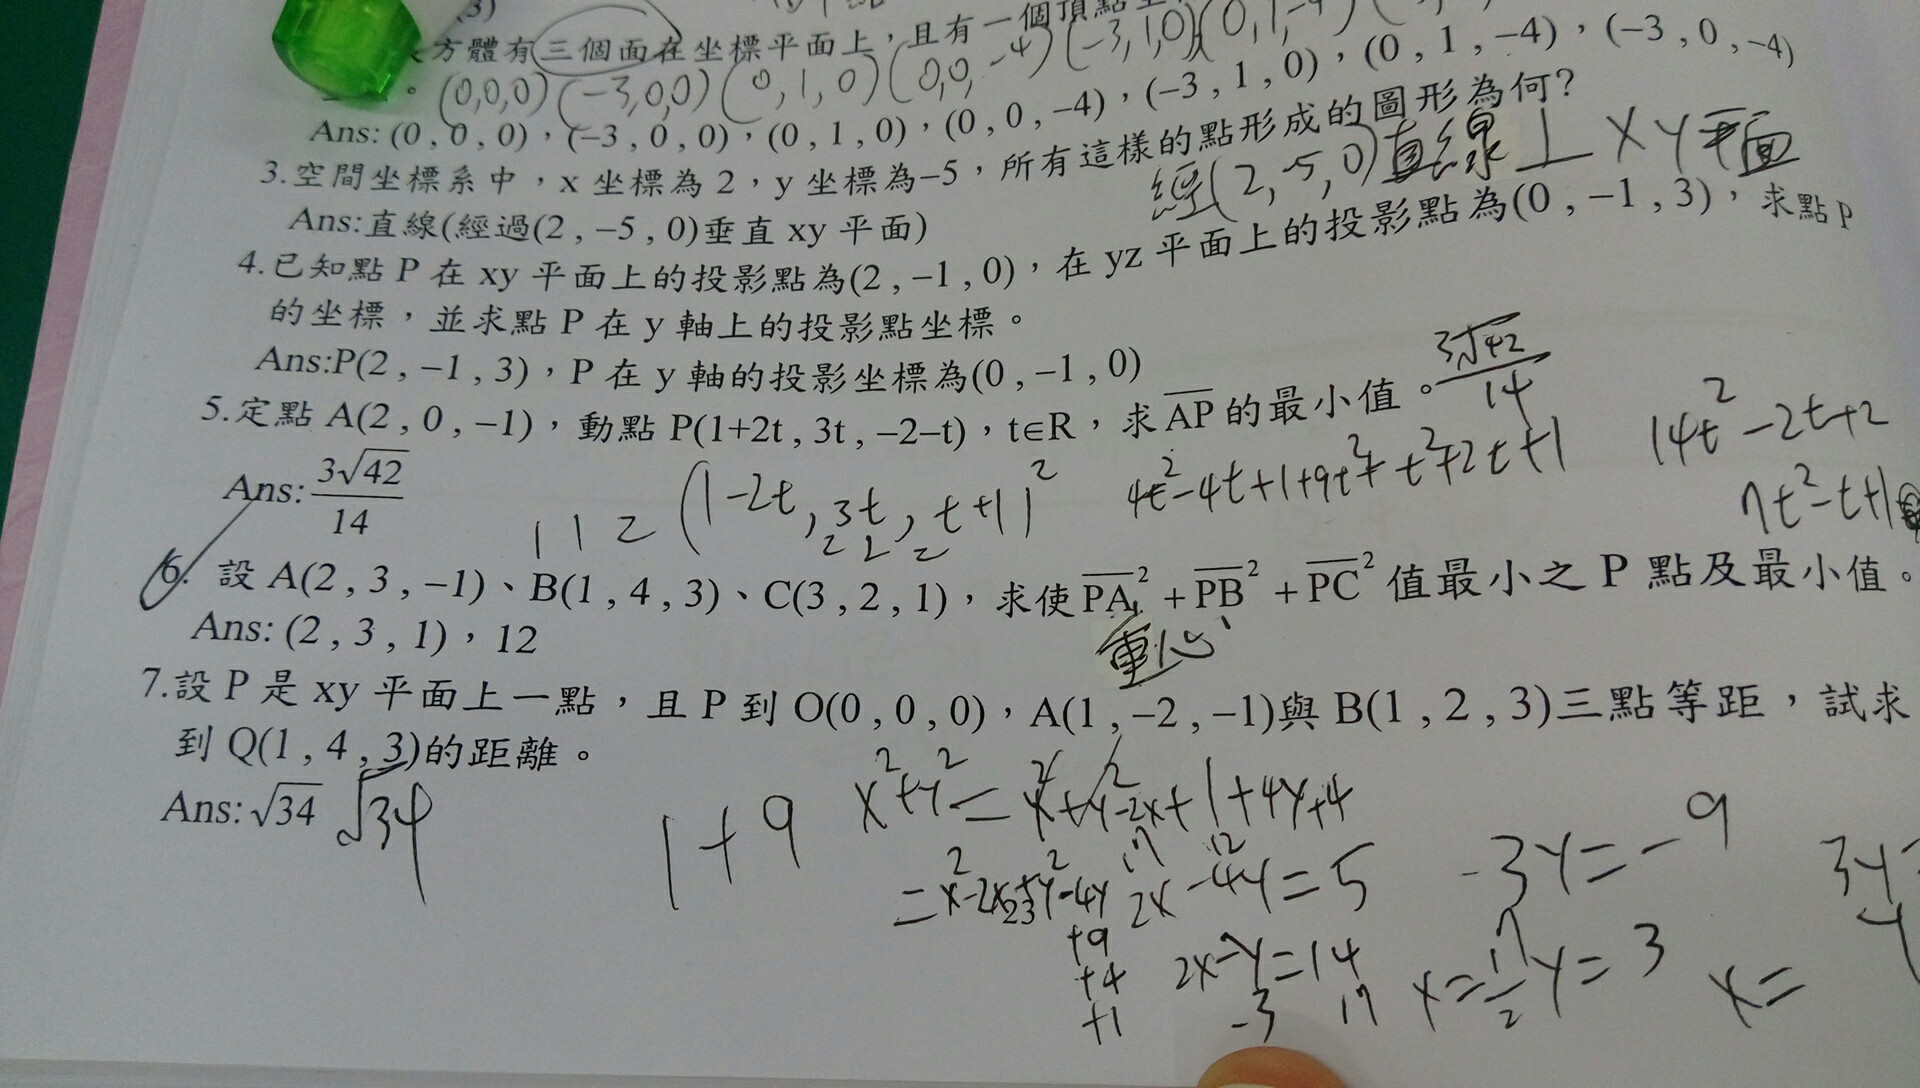 (3)
方體有三個面在坐標平面上，且有一個頂點
。(0,0,0)(-3,0,0)(0,1,0)(0,0,-4)(-3,1,0)(0,1,-4)
Ans: (0 , 0 , 0)，(−3 , 0 , 0)，(0 , 1 , 0)，(0 , 0 , −4)，(−3 , 1 , 0)，(0 , 1 , −4)，(−3 , 0 , −4)
3.空間坐標系中，x 坐標為 2，y 坐標為−5，所有這樣的點形成的圖形為何？
經(2,-5,0)直線⊥XY平面
Ans:直線(經過(2 , −5 , 0)垂直 xy 平面)
4.已知點 P 在 xy 平面上的投影點為(2 , −1 , 0)，在 yz 平面上的投影點為(0 , −1 , 3)，求點 P
的坐標，並求點 P 在 y 軸上的投影點坐標。
Ans:P(2 , −1 , 3)，P 在 y 軸的投影坐標為(0 , −1 , 0)
5.定點 A(2 , 0 , −1)，動點 P(1+2t , 3t , −2−t)，t∈R，求 AP 的最小值。3√42/14
14t²-2t+2
Ans: 3√42/14
(1-2t, 3t, t+1)²
4t²-4t+1+9t²+t²+2t+1
7t²-t+1
1 1 2
2 2 2
6. 設 A(2 , 3 , −1)、B(1 , 4 , 3)、C(3 , 2 , 1)，求使PA²+PB²+PC²值最小之 P 點及最小值。
Ans: (2 , 3 , 1)，12
重心
7.設 P 是 xy 平面上一點，且 P 到 O(0 , 0 , 0)，A(1 , −2 , −1)與 B(1 , 2 , 3)三點等距，試求
到 Q(1 , 4 , 3)的距離。
Ans: √34 √34
1+9
x²+y²=x²+y²-2x+1+4y+4
17 12
2x-4y=5
-3y=-9
3y
+9
+4
+1
2x-y=14
-3 17
x=17/2 y=3
x=